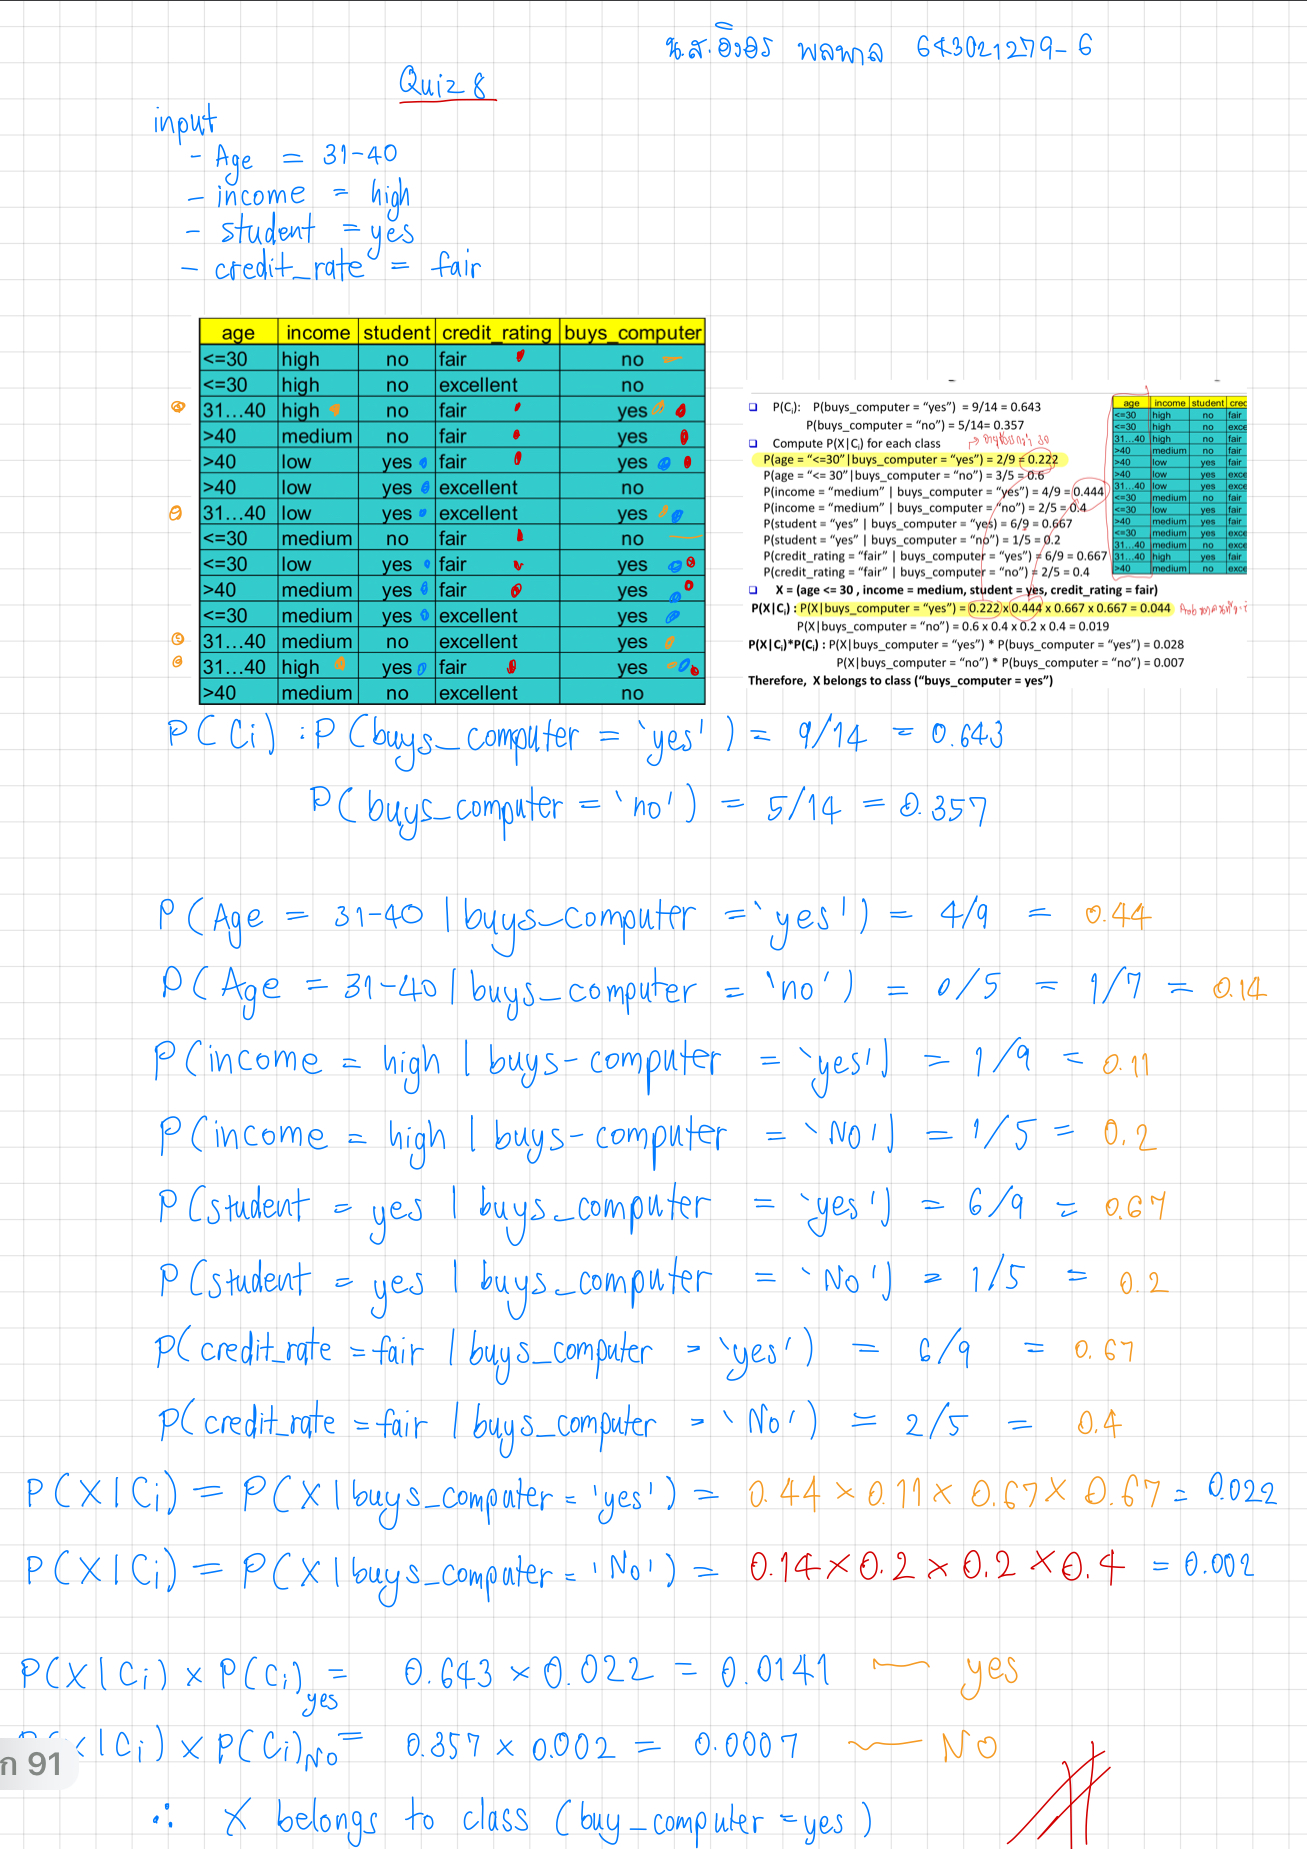 น.ส.อิงอร พลพาล 643021279-6
Quiz 8
input
- Age = 31-40
- income = high
- student = yes
- credit_rate = fair
age income student credit_rating buys_computer
<=30 high no fair no
<=30 high no excellent no
31...40 high no fair yes
>40 medium no fair yes
>40 low yes fair yes
>40 low yes excellent no
31...40 low yes excellent yes
<=30 medium no fair no
<=30 low yes fair yes
>40 medium yes fair yes
<=30 medium yes excellent yes
31...40 medium no excellent yes
31...40 high yes fair yes
>40 medium no excellent no
P(Ci): P(buys_computer = “yes”) = 9/14 = 0.643
P(buys_computer = “no”) = 5/14= 0.357
Compute P(X|Ci) for each class
P(age = “<=30”|buys_computer = “yes”) = 2/9 = 0.222
P(age = “<= 30”|buys_computer = “no”) = 3/5 = 0.6
P(income = “medium” | buys_computer = “yes”) = 4/9 = 0.444
P(income = “medium” | buys_computer = “no”) = 2/5 = 0.4
P(student = “yes” | buys_computer = “yes) = 6/9 = 0.667
P(student = “yes” | buys_computer = “no”) = 1/5 = 0.2
P(credit_rating = “fair” | buys_computer = “yes”) = 6/9 = 0.667
P(credit_rating = “fair” | buys_computer = “no”) = 2/5 = 0.4
X = (age <= 30 , income = medium, student = yes, credit_rating = fair)
P(X|Ci) : P(X|buys_computer = “yes”) = 0.222 x 0.444 x 0.667 x 0.667 = 0.044
P(X|buys_computer = “no”) = 0.6 x 0.4 x 0.2 x 0.4 = 0.019
P(X|Ci)*P(Ci) : P(X|buys_computer = “yes”) * P(buys_computer = “yes”) = 0.028
P(X|buys_computer = “no”) * P(buys_computer = “no”) = 0.007
Therefore, X belongs to class (“buys_computer = yes”)
age income student cred
<=30 high no fair
<=30 high no exce
31...40 high no fair
>40 medium no fair
>40 low yes fair
>40 low yes exce
31...40 low yes exce
<=30 medium no fair
<=30 low yes fair
>40 medium yes fair
<=30 medium yes exce
31...40 medium no exce
31...40 high yes fair
>40 medium no exce
P(Ci) : P(buys_computer = 'yes') = 9/14 = 0.643
P(buys_computer = 'no') = 5/14 = 0.357
P(Age = 31-40 | buys_computer = 'yes') = 4/9 = 0.44
P(Age = 31-40 | buys_computer = 'no') = 0/5 = 1/7 = 0.14
P(income = high | buys-computer = 'yes') = 1/9 = 0.11
P(income = high | buys-computer = 'No') = 1/5 = 0.2
P(student = yes | buys_computer = 'yes') = 6/9 = 0.67
P(student = yes | buys_computer = 'No') = 1/5 = 0.2
P(credit_rate = fair | buys_computer = 'yes') = 6/9 = 0.67
P(credit_rate = fair | buys_computer = 'No') = 2/5 = 0.4
P(X|Ci) = P(X|buys_computer = 'yes') = 0.44 x 0.11 x 0.67 x 0.67 = 0.022
P(X|Ci) = P(X|buys_computer = 'No') = 0.14 x 0.2 x 0.2 x 0.4 = 0.002
P(X|Ci) x P(Ci)yes = 0.643 x 0.022 = 0.0141 — yes
P(X|Ci) x P(Ci)No = 0.357 x 0.002 = 0.0007 — NO
ก 91
∴ X belongs to class (buy_computer = yes)